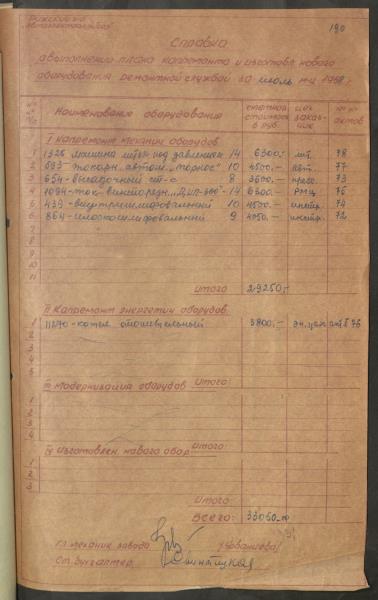 190
Справка
о выполнении плана капремонта и изготовл. нового
оборудования ремонтной службой за июль м-ц
№ п/п Наименование оборудования сметная стоимость в руб. цех заказчик №№ актов
I Капремонт механич. оборудов.
1 1325 машина литья под давлением 14 6300,- лит. 78
2 693 - токарн. автом. "Торнос" 10 4500,- авт. 77
3 654 - высадочный ст-к 8 3600,- пресс. 73
4 1094 - ток. винторезн. "ДИП-300" - 14 6300,- РМЦ 75
5 439 - внутришлифовальный 10 4500,- инстр. 74
6 864 - плоскошлифовальный 9 4050,- инстр. 72
7
8
9
10
11
Итого 29250,-
II Капремонт энергетич. оборудов.
1 11270 - котел отопительный 3800,- эн.цех акт 76
2
3
4
5
III Модернизация оборудов. Итого:
1
2
3
4
IV Изготовлен. нового обор. Итого:
1
2
3
Итого:
Всего: 33050
Гл. механик завода
Ст. бухгалтер